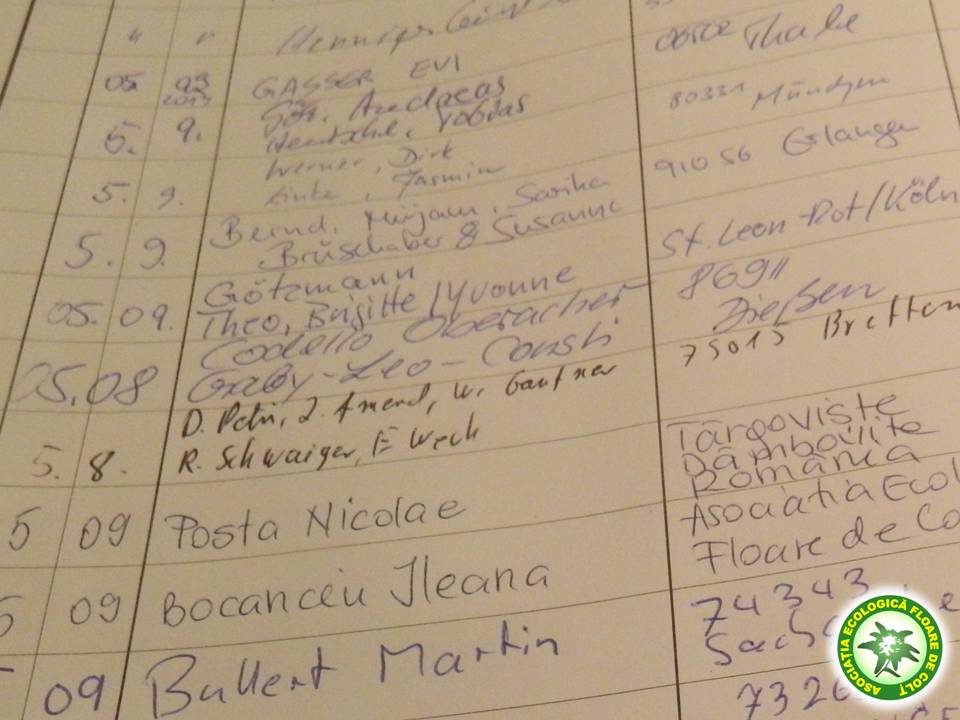 " "
06502 Thale
05 09 2013 GASSER EVI
Andreas
5. 9. Tobias
80331 München
Werner, Dirk
5. 9. Linke, Jasmin
91056 Erlangen
5. 9. Bernd, Mirjam, Sarika
Brüschaber & Susanne
St. Leon-Rot/Köln
05. 09. Götzmann
Theo, Brigitte / Yvonne
86911
Dießen
05.08 Codello Oberacher
Gaby-Leo-Consti
75015 Bretten
5. 8. D. Petri, J. Amend, W.
R. Schwaiger, E Weck
Târgoviște
Dâmbovițe
România
5 09 Posta Nicolae
Asociatia Ecol
Floare de Co
5 09 Bocanceu Ileana
74343
Sachs
09 Bullert Martin
7326
ASOCIATIA ECOLOGICĂ FLOARE DE COLȚ